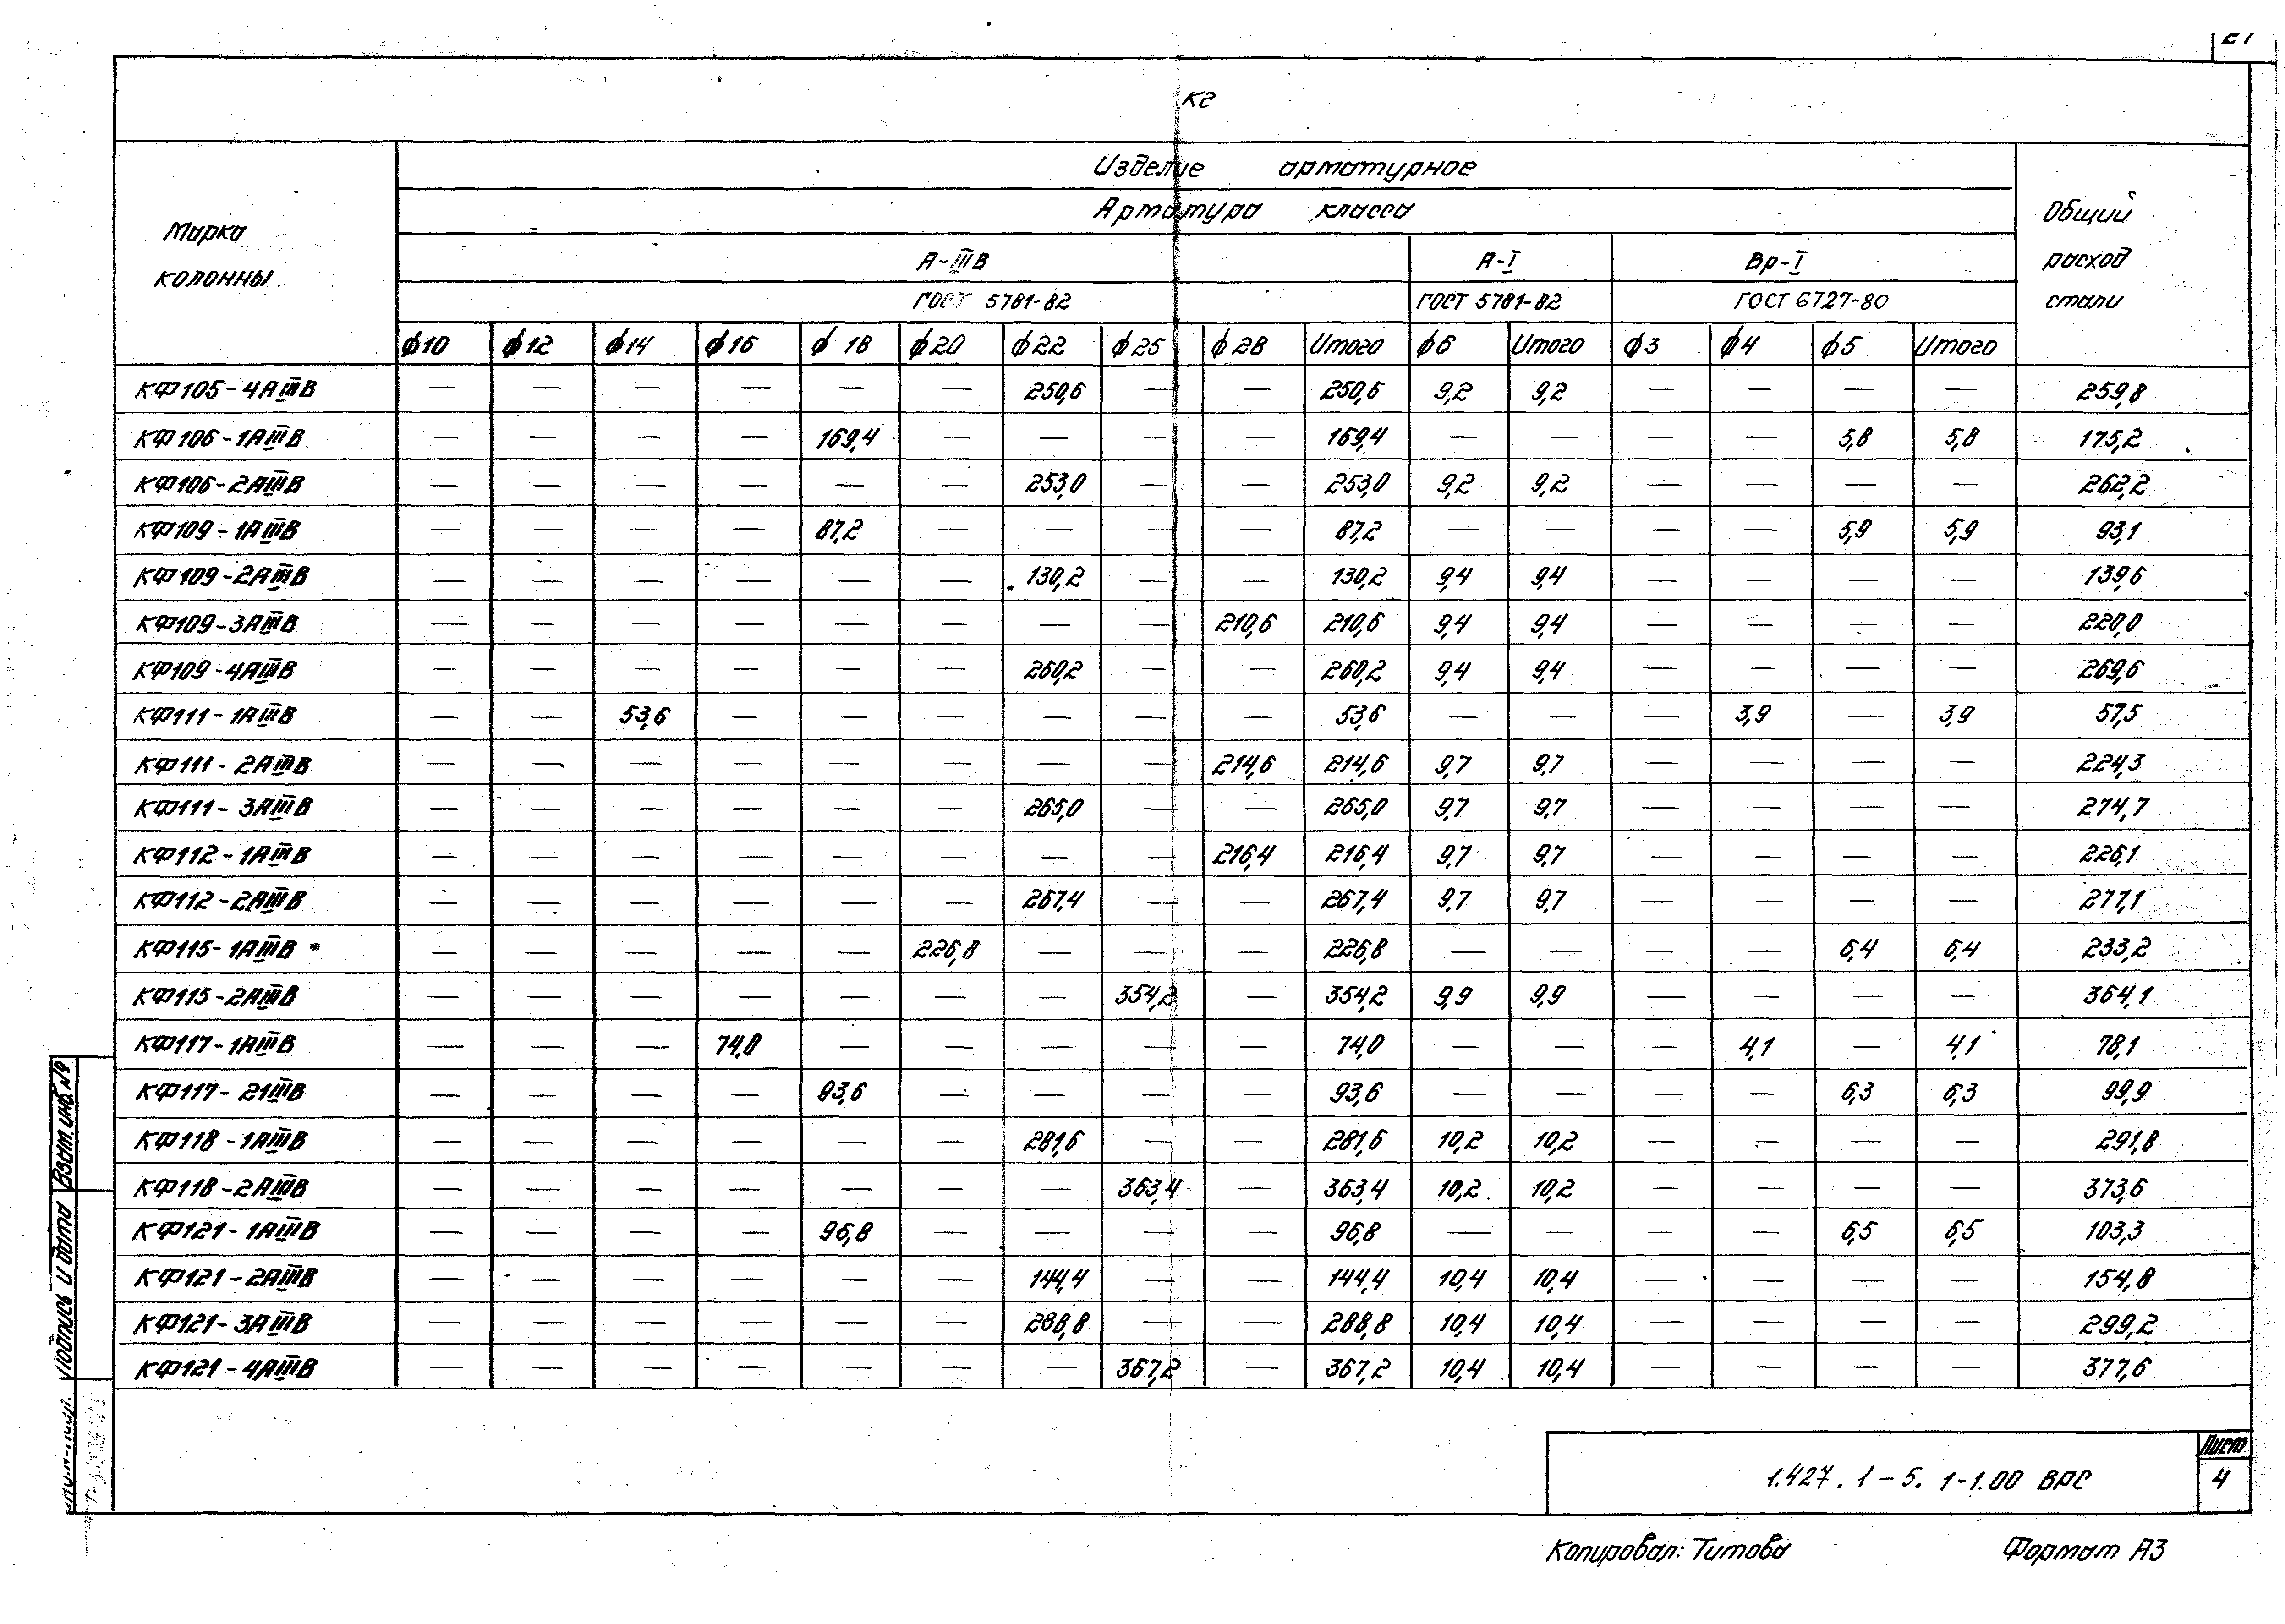 кг
Изделие арматурное
Арматура класса
Марка колонны
Общий расход стали
А-IIIВ А-I Вр-I
ГОСТ 5781-82 ГОСТ 5781-82 ГОСТ 6727-80
ф10 ф12 ф14 ф16 ф 18 ф20 ф22 ф25 ф28 Итого ф6 Итого ф3 ф4 ф5 Итого
КФ105-4АIIIВ — — — — — — 250,6 — — 250,6 9,2 9,2 — — — — 259,8
КФ106-1АIIIВ — — — — 169,4 — — — — 169,4 — — — — 5,8 5,8 175,2
КФ106-2АIIIВ — — — — — — 253,0 — — 253,0 9,2 9,2 — — — — 262,2
КФ109-1АIIIВ — — — — 87,2 — — — — 87,2 — — — — 5,9 5,9 93,1
КФ109-2АIIIВ — — — — — — 130,2 — — 130,2 9,4 9,4 — — — — 139,6
КФ109-3АIIIВ — — — — — — — — 210,6 210,6 9,4 9,4 — — — — 220,0
КФ109-4АIIIВ — — — — — — 260,2 — — 260,2 9,4 9,4 — — — — 269,6
КФ111-1АIIIВ — — 53,6 — — — — — — 53,6 — — — 3,9 — 3,9 57,5
КФ111-2АIIIВ — — — — — — — — 214,6 214,6 9,7 9,7 — — — — 224,3
КФ111-3АIIIВ — — — — — — 265,0 — — 265,0 9,7 9,7 — — — — 274,7
КФ112-1АIIIВ — — — — — — — — 216,4 216,4 9,7 9,7 — — — — 226,1
КФ112-2АIIIВ — — — — — — 267,4 — — 267,4 9,7 9,7 — — — — 277,1
КФ115-1АIIIВ — — — — — 226,8 — — — 226,8 — — — — 6,4 6,4 233,2
КФ115-2АIIIВ — — — — — — — 354,2 — 354,2 9,9 9,9 — — — — 364,1
КФ117-1АIIIВ — — — 74,0 — — — — — 74,0 — — — 4,1 — 4,1 78,1
КФ117-21IIIВ — — — — 93,6 — — — — 93,6 — — — — 6,3 6,3 99,9
КФ118-1АIIIВ — — — — — — 281,6 — — 281,6 10,2 10,2 — — — — 291,8
КФ118-2АIIIВ — — — — — — — 363,4 — 363,4 10,2 10,2 — — — — 373,6
КФ121-1АIIIВ — — — — 96,8 — — — — 96,8 — — — — 6,5 6,5 103,3
КФ121-2АIIIВ — — — — — — 144,4 — — 144,4 10,4 10,4 — — — — 154,8
КФ121-3АIIIВ — — — — — — 288,8 — — 288,8 10,4 10,4 — — — — 299,2
КФ121-4АIIIВ — — — — — — — 367,2 — 367,2 10,4 10,4 — — — — 377,6
Взам. инв. №
Подпись и дата
1.427.1-5.1-1.00 ВРС
Лист
4
Копировал: Титова Формат А3